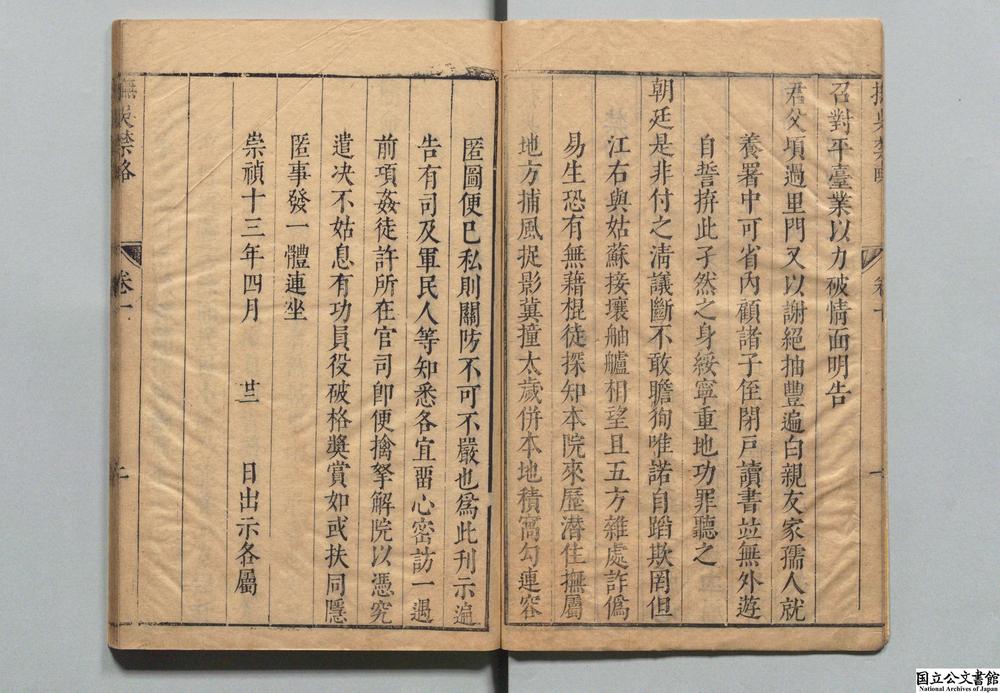 召對平臺業以力破情面明告
君父項過里門又以謝絕抽豐遍白親友家孺人就
養署中可省內顧諸子侄閉戶讀書並無外遊
自誓拚此孑然之身綏寧重地功罪聽之
朝廷是非付之淸議斷不敢瞻徇唯諾自蹈欺罔但
江右與姑蘇接壤舳艫相望且五方雜處詐僞
易生恐有無藉棍徒探知本院來歷潜住撫屬
地方捕風捉影冀撞太歲併本地積窩勾連容
匿圖便巳私則關防不可不嚴也爲此刊示遍
告有司及軍民人等知悉各宜畱心密訪一遇
前項姦徒許所在官司卽便擒拏解院以憑究
遣决不姑息有功員役破格奬賞如或扶同隱
匿事發一體連坐
崇禎十三年四月 廿三 日出示各屬
撫吳禁略 卷一 二
国立公文書館
National Archives of Japan